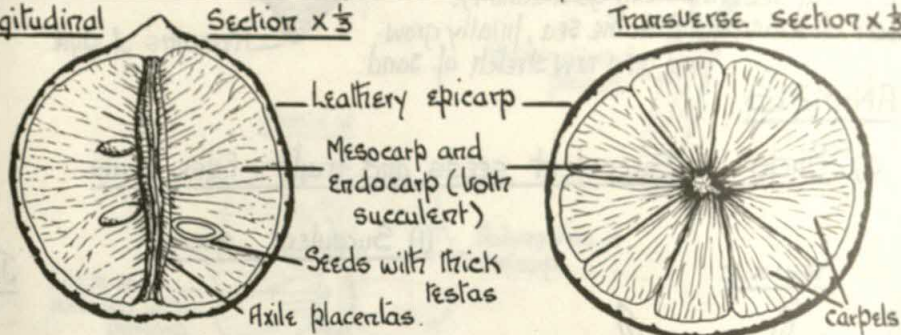 gitudinal Section x ⅓
Transverse Section x ⅓
Leathery epicarp
Mesocarp and
Endocarp (both
succulent)
Seeds with thick
testas
Axile placentas.
carpels